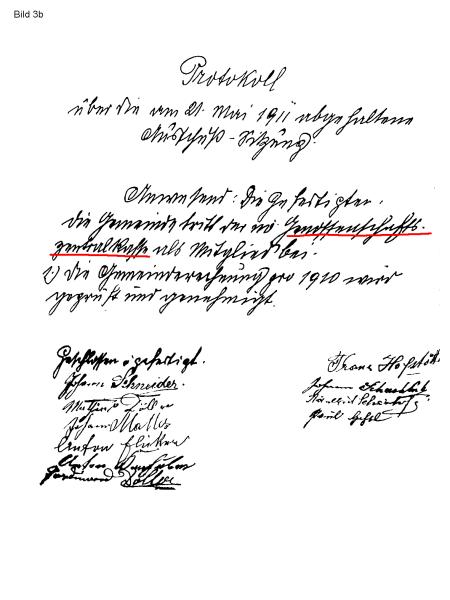 Bild 3b
Protokoll
über die am 21. Mai 1911 abgehaltene
Ausschuß-Sitzung.
Anwesend: Die Gefertigten.
Die Gemeinde tritt der nö Genossenschafts-
zentralkasse als Mitglied bei.
2.) Die Gemeinderechnung pro 1910 wird
geprüft und genehmigt.
Geschlossen & gefertigt.
Franz
Johann Schneider.
Johann
Mathias
Johann
Paul
Anton
Anton
Ferdinand